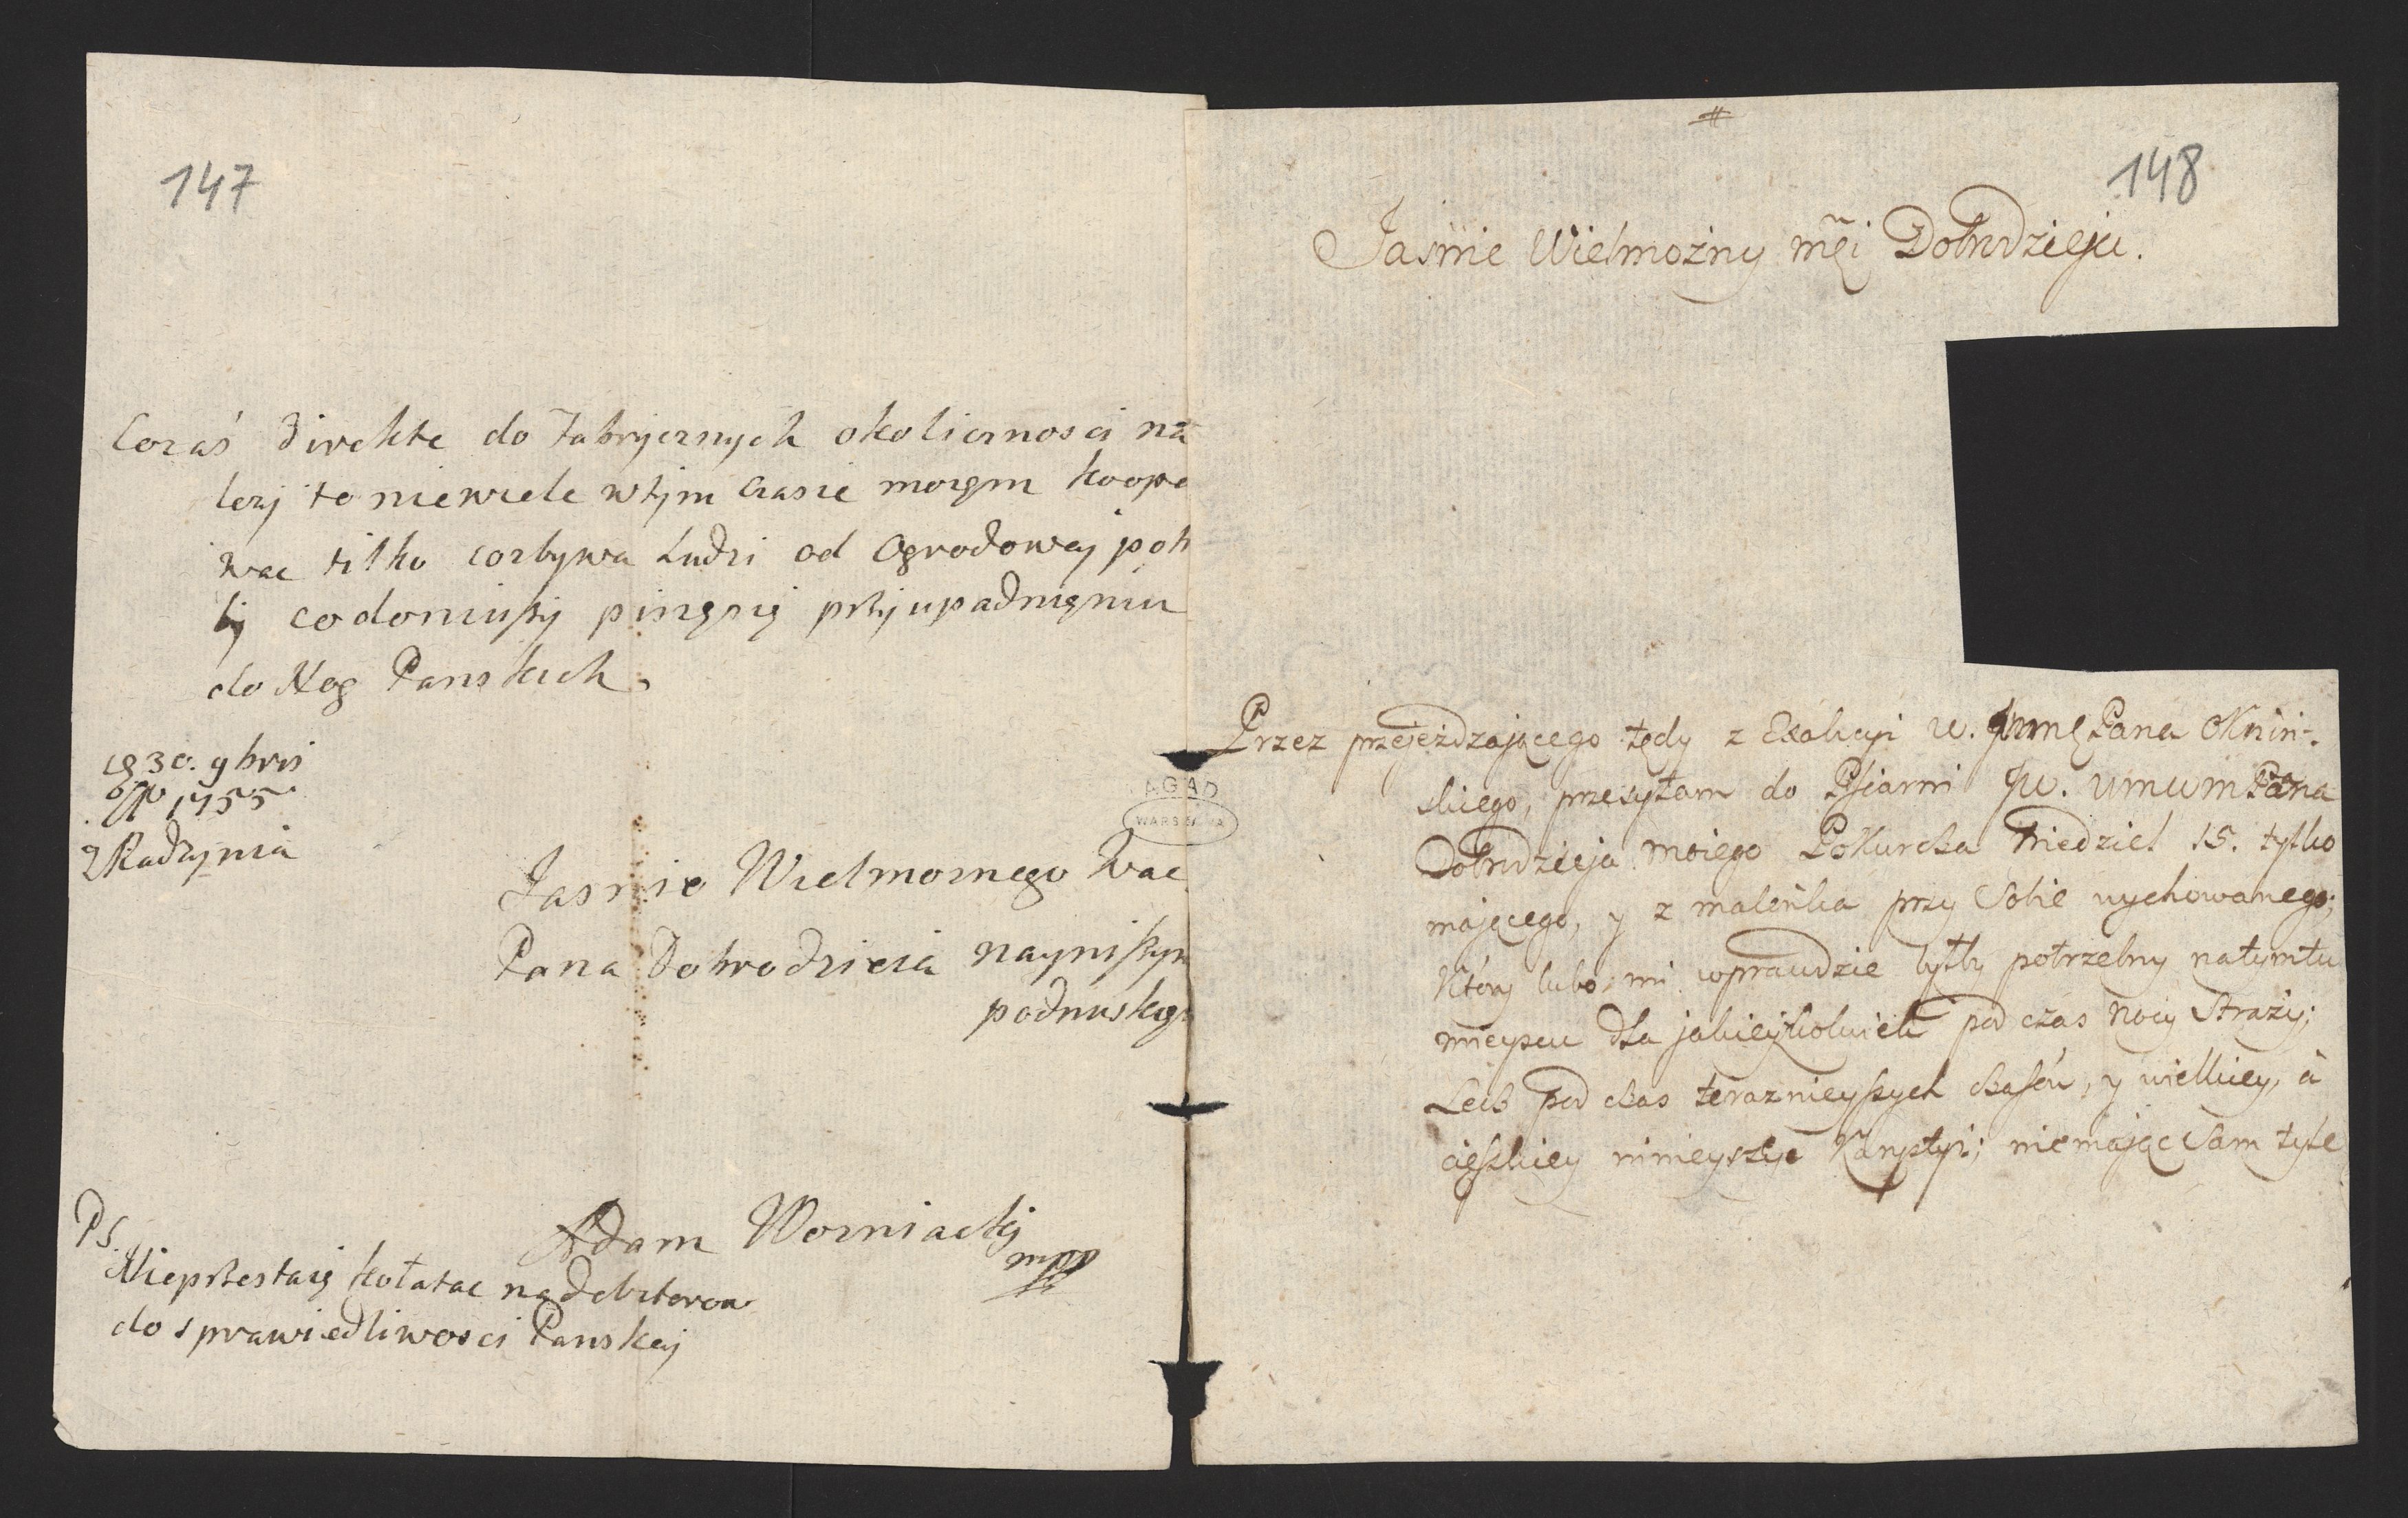 147
Cozaś direkte do Fabrycznych okolicznosci na
lezy to niewiele wtym czasie mozem koope
wac tilko cozbywa Ludzi od Ogrodowej pot
by codoniuszy piszęsię przyupadnięniu
do Nog Panskich
30. 9bris
1755
z Radzynia
Jasnie Wielmoznego Wac
Pana Dobrodzieia naynizszym
podnuskiem
Adam Wozniacky
mpp
PS.
Nieprzestaię kołatac nadebitorow
do sprawiedliwosci Panskiej
AGAD
WARSZAWA
148
Jasnie Wielmożny mci Dobrodzieju.
Przez przejeżdzającego tędy z Exakcyi w. Jmnę Pana Oknin-
skiego, przesyłam do Psiarni Jw. Umwm Pana
Dobrodzieja moiego Pokurcza Niedziel 15. tylko
mającego, y z maleńka przy Sobie wychowanego;
Który lubo mi wprawdzie byłby potrzebny natymtu
mieyscu dla jakieyźkolwiek pod czas nocy Straży;
Lecz pod czas teraznieyszych czasów, y wielkiey, à
cięszkiey ninieyszey Karystyi; niemając Sam tyle